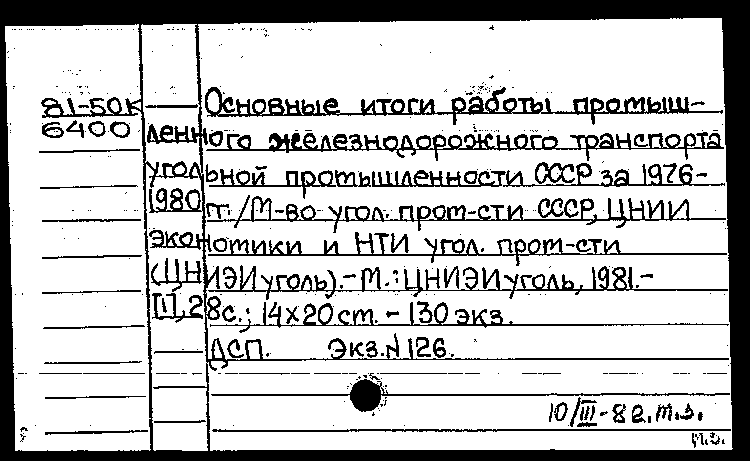 81-50К Основные итоги работы промыш-
6400 ленного железнодорожного транспорта
угольной промышленности СССР за 1976-
1980 гг./М-во угол. пром-сти СССР, ЦНИИ
экономики и НТИ угол. пром-сти
(ЦНИЭИуголь).-М.: ЦНИЭИуголь, 1981.-
[1], 28с.; 14х20 ст. - 130 экз.
ДСП. Экз.N 126.
10/III-82.т.з.